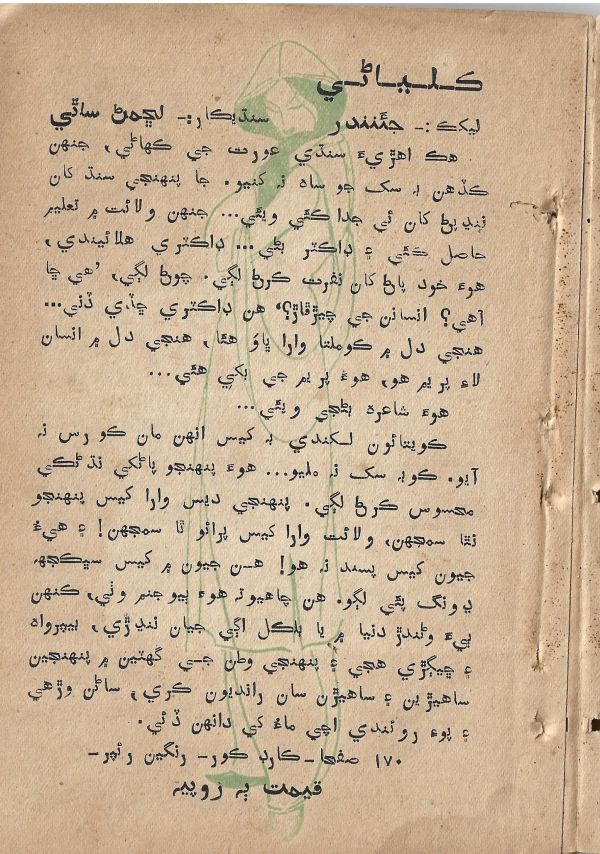 ڪـلـيـاڻـي
ليکڪ:- جئنيندر سنڌيڪار:- لڇمڻ ساٿي
هڪ اهڙيءَ سنڌي عورت جي ڪهاڻي، جنهن
ڪڏهن بہ سک جو ساہ نہ کنيو. جا پنهنجي سنڌ کان
ننڍپڻ کان ئي جدا ڪئي ويئي... جنهن ولائت ۾ تعليم
حاصل ڪئي ۽ ڊاڪٽر بڻي... ڊاڪٽري هلائيندي،
هوءَ خود پاڻ کان نفرت ڪرڻ لڳي. چوڻ لڳي، ’هي ڇا
آهي؟ انسانن جي چيڙڦاڙ؟‘ هن ڊاڪٽري ڇڏي ڏني...
هنجي دل ۾ ڪوملتا وارا ڀاوَ هئا، هنجي دل ۾ انسان
لاءِ پريم هو، هوءَ پريم جي بکي هئي...
هوءَ شاعره بڻجي ويئي...
ڪويتائون لکندي بہ کيس انهن مان ڪو رس نہ
آيو. ڪوبہ سک نہ مليو... هوءَ پنهنجو پاڻکي نڌڻڪي
محسوس ڪرڻ لڳي. پنهنجي ديس وارا کيس پنهنجو
نٿا سمجهن، ولائت وارا کيس پرائو ٿا سمجهن! ۽ هيءُ
جيون کيس پسند نہ هو! هـن جيون ۾ کيس سڀڪجهہ
ڍونگ پئي لڳو. هن چاهيو تہ هوءَ ٻيو جنم وٺي، ڪنهن
ٻيءَ وڻندڙ دنيا ۾ يا بلڪل اڳي جيان ننڍڙي، بيپرواہ
۽ چيڳڙي هجي ۽ پنهنجي وطن جـي گهٽين ۾ پنهنجين
ساهيڙين ۽ ساهيڙن سان رانديون ڪري، ساڻن وڙهي
۽ پوءِ روئندي اچي ماءُ کي دانهن ڏئي.
١٧٠ صفحا- ڪارڊ ڪور- رنگين رئپر-
قيمت ٻہ روپيہ